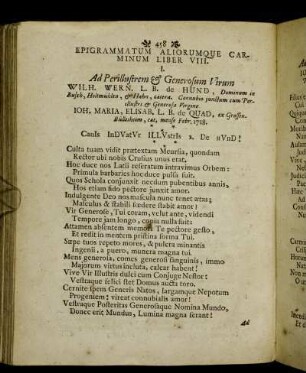 458
EPIGRAMMATUM ALIORUMQUE CAR-
MINUM LIBER VIII.
I.
Ad Perillustrem & Generosum Virum
WILH. WERN. L. B. de HUND, Dominum in
cum Per-
illustri & Generosa Virgine
IOH. MARIA, ELISAB. L. B. de QUAD, ex
mense Febr. 1718.
CanIs InDVatVr ILLVstrIs 2. De HVnD!
Culta tuam vidit prætextam Meursia, quondam
Rector ubi nobis Crusius unus erat.
Hoc duce nos Latii reserarunt intravimus Orbem:
Primula barbaries hoc duce pulsa fuit.
Quos Schola conjunxit necdum pubentibus annis,
Hos etiam fido pectore junxit amor.
Indulgente Deo nos mascula nunc tenet ætas;
Masculus & stabili fœdere stabit amor!
Vir Generose, Tui cœtum, velut ante, videndi
Tempore jam longo, copia nulla fuit:
Attamen absentem memori Te pectore gesto,
Et redit in mentem pristina forma Tui.
Sæpe tuos repeto mores, & pulcra minantis
Ingenii, a puero, munera magna tui
Mens generosa, comes generi sanguinis, immo
Majorum virtus incluta, calcar habent!
Vive Vir Illustris dulci cum Conjuge Nestor:
Vestraque felici stet Domus aucta toro.
Cernite spem Generis Natos, largamque Nepotum
Progeniem: vireat connubialis amor!
Vestraque Posteritas Generosaque Nomina Mundo,
Donec erit Mundus, Lumina magna ferant!
Ad